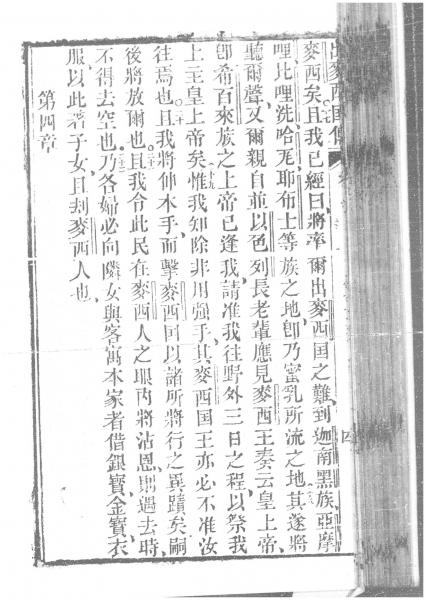 出麥西國傳
麥西矣且我已經曰將率爾出麥西国之難到迦南黑族亞摩
哩比哩洗哈𠯈耶布士等族之地卽乃蜜乳所流之地其遂將
聽爾聲又爾親自並以色列長老輩應見麥西王奏云皇上帝
卽希百來族之上帝已逢我請准我往野外三日之程以祭我
上主皇上帝矣惟我知除非用强手其麥西国王亦必不准汝
往焉也且我將伸本手而擊麥西囘以諸所將行之異蹟矣嗣
後將放爾也且我令此民在麥西人之眼内將沾恩則過去時
不得去空也乃各婦必向隣女與客寓本家者借銀寶金寶衣
服以此著子女且刦麥西人也
第四章